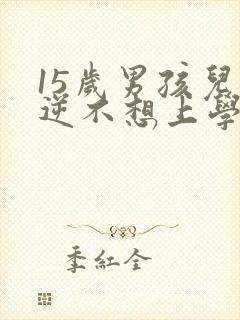 15歲男孩兒
逆不想上學
季紅全